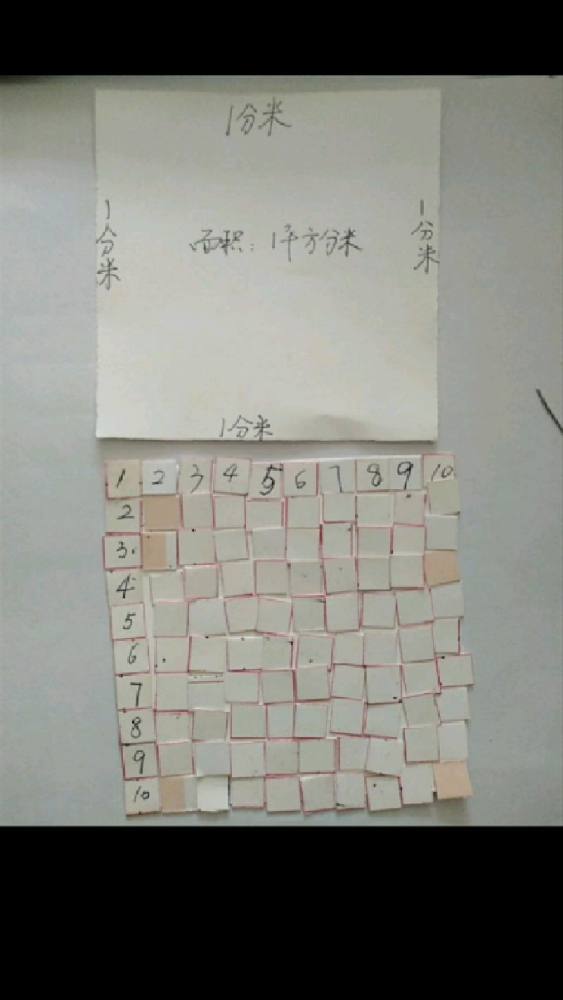 1分米
1分米
1分米
面积：1平方分米
1分米
1 2 3 4 5 6 7 8 9 10
2
3.
4
5
6
7
8
9
10